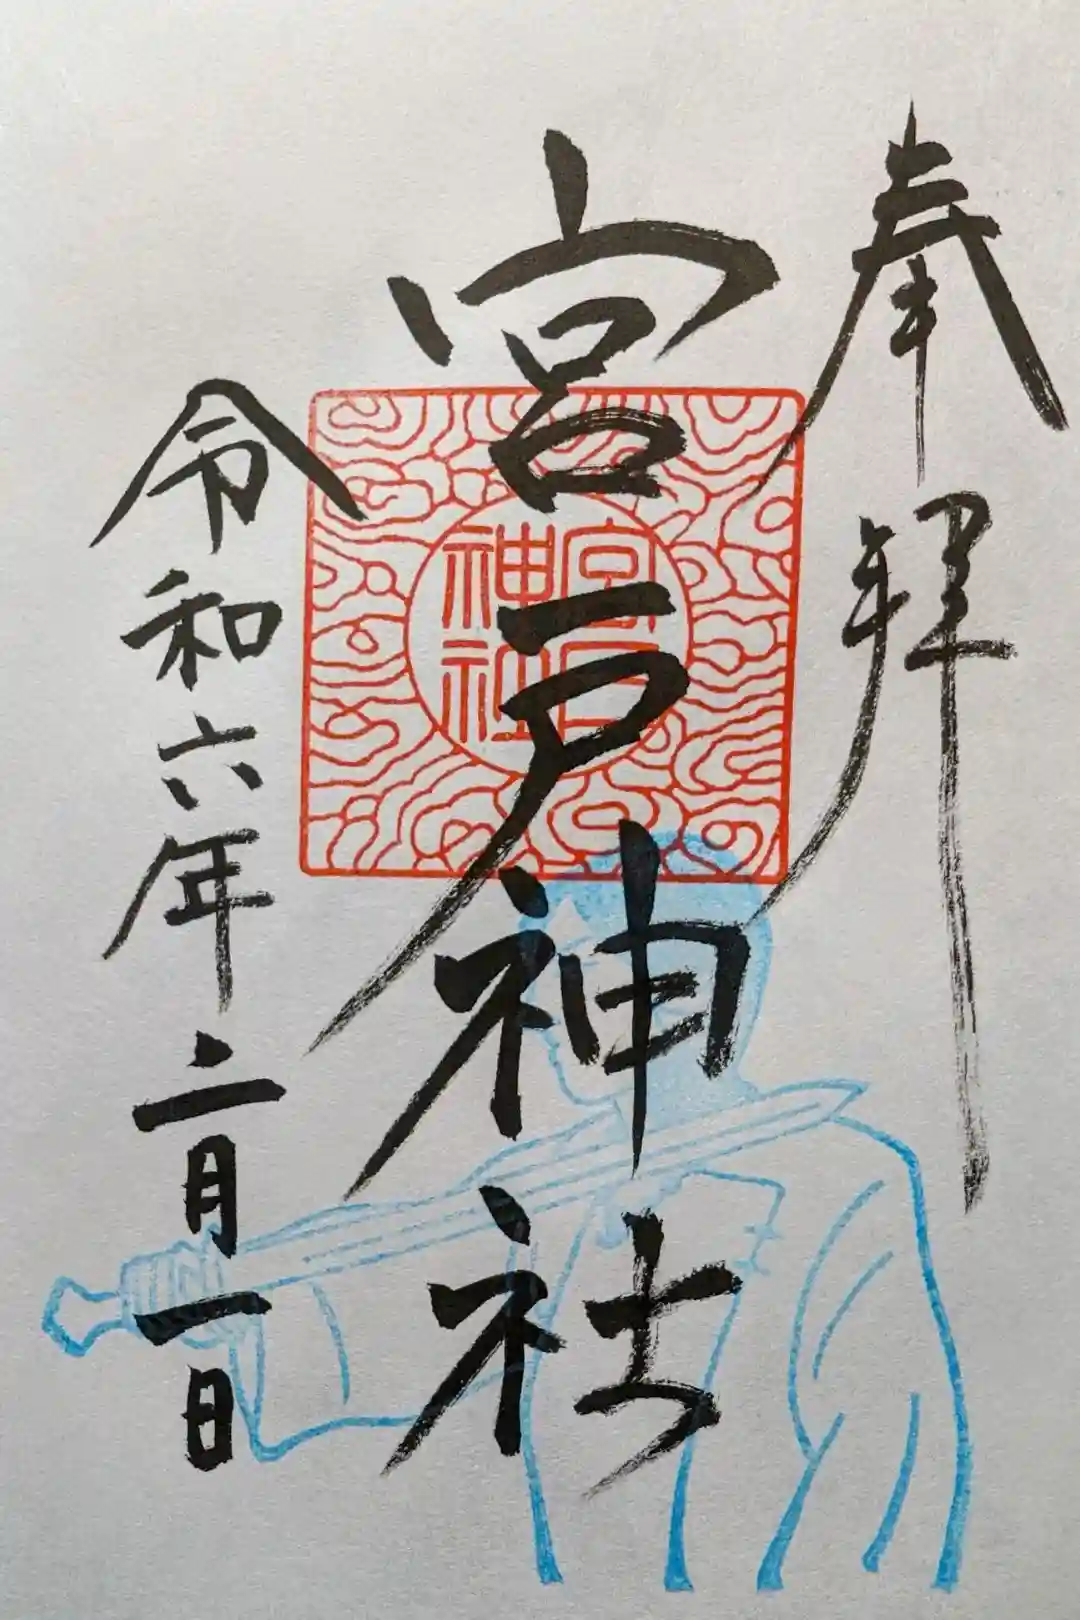 奉拝
宮戸神社
宮戸
神社
令和六年二月一日